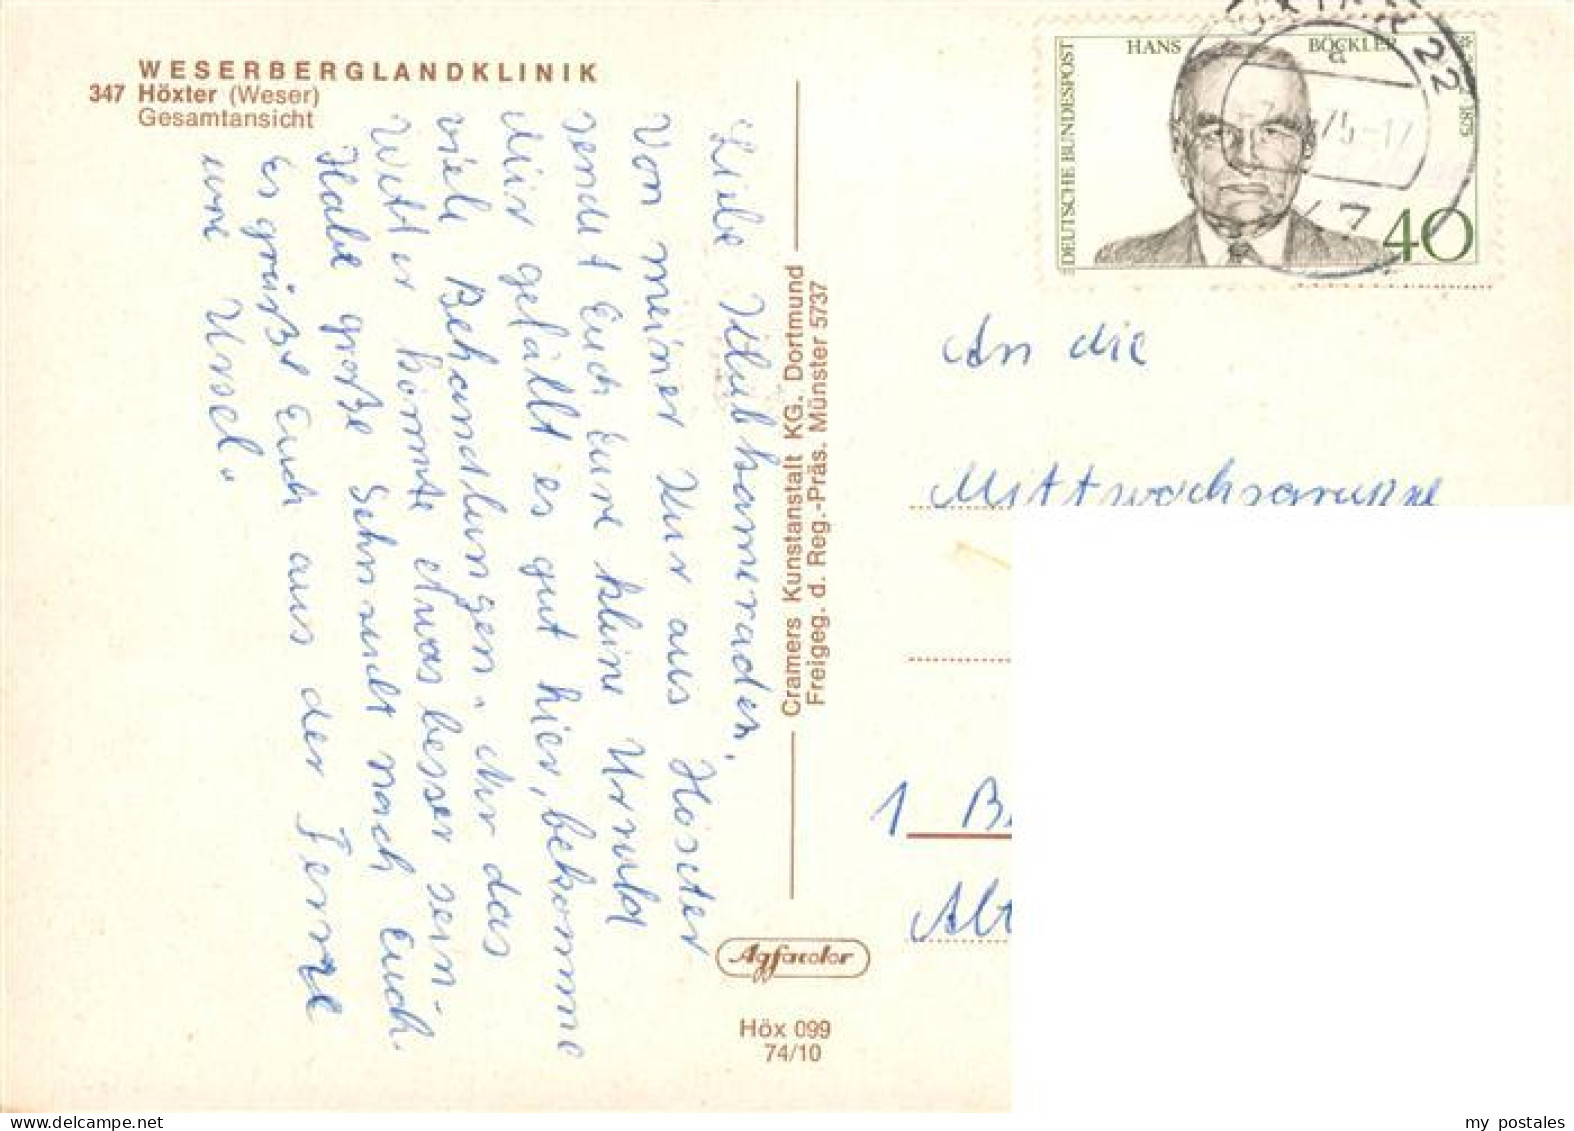 WESERBERGLANDKLINIK
347 Höxter (Weser)
Gesamtansicht
Liebe Klubkameraden,
Von meiner Kur aus Höxter
sendet Euch Eure kleine
Mir gefällt es gut hier, bekomme
viele Behandlungen. Nur das
Wetter könnte etwas besser sein.
Habe große Sehnsucht nach Euch.
Es grüßt Euch aus der Ferne
eure Ursel.
Cramers Kunstanstalt KG. Dortmund
Freigeg. d. Reg.-Präs. Münster 5737
Agfacolor
Höx 099
74/10
DEUTSCHE BUNDESPOST
HANS BÖCKLER
1875
40
22
An die
Mittwochsgruppe
1 B
Alt
my postales